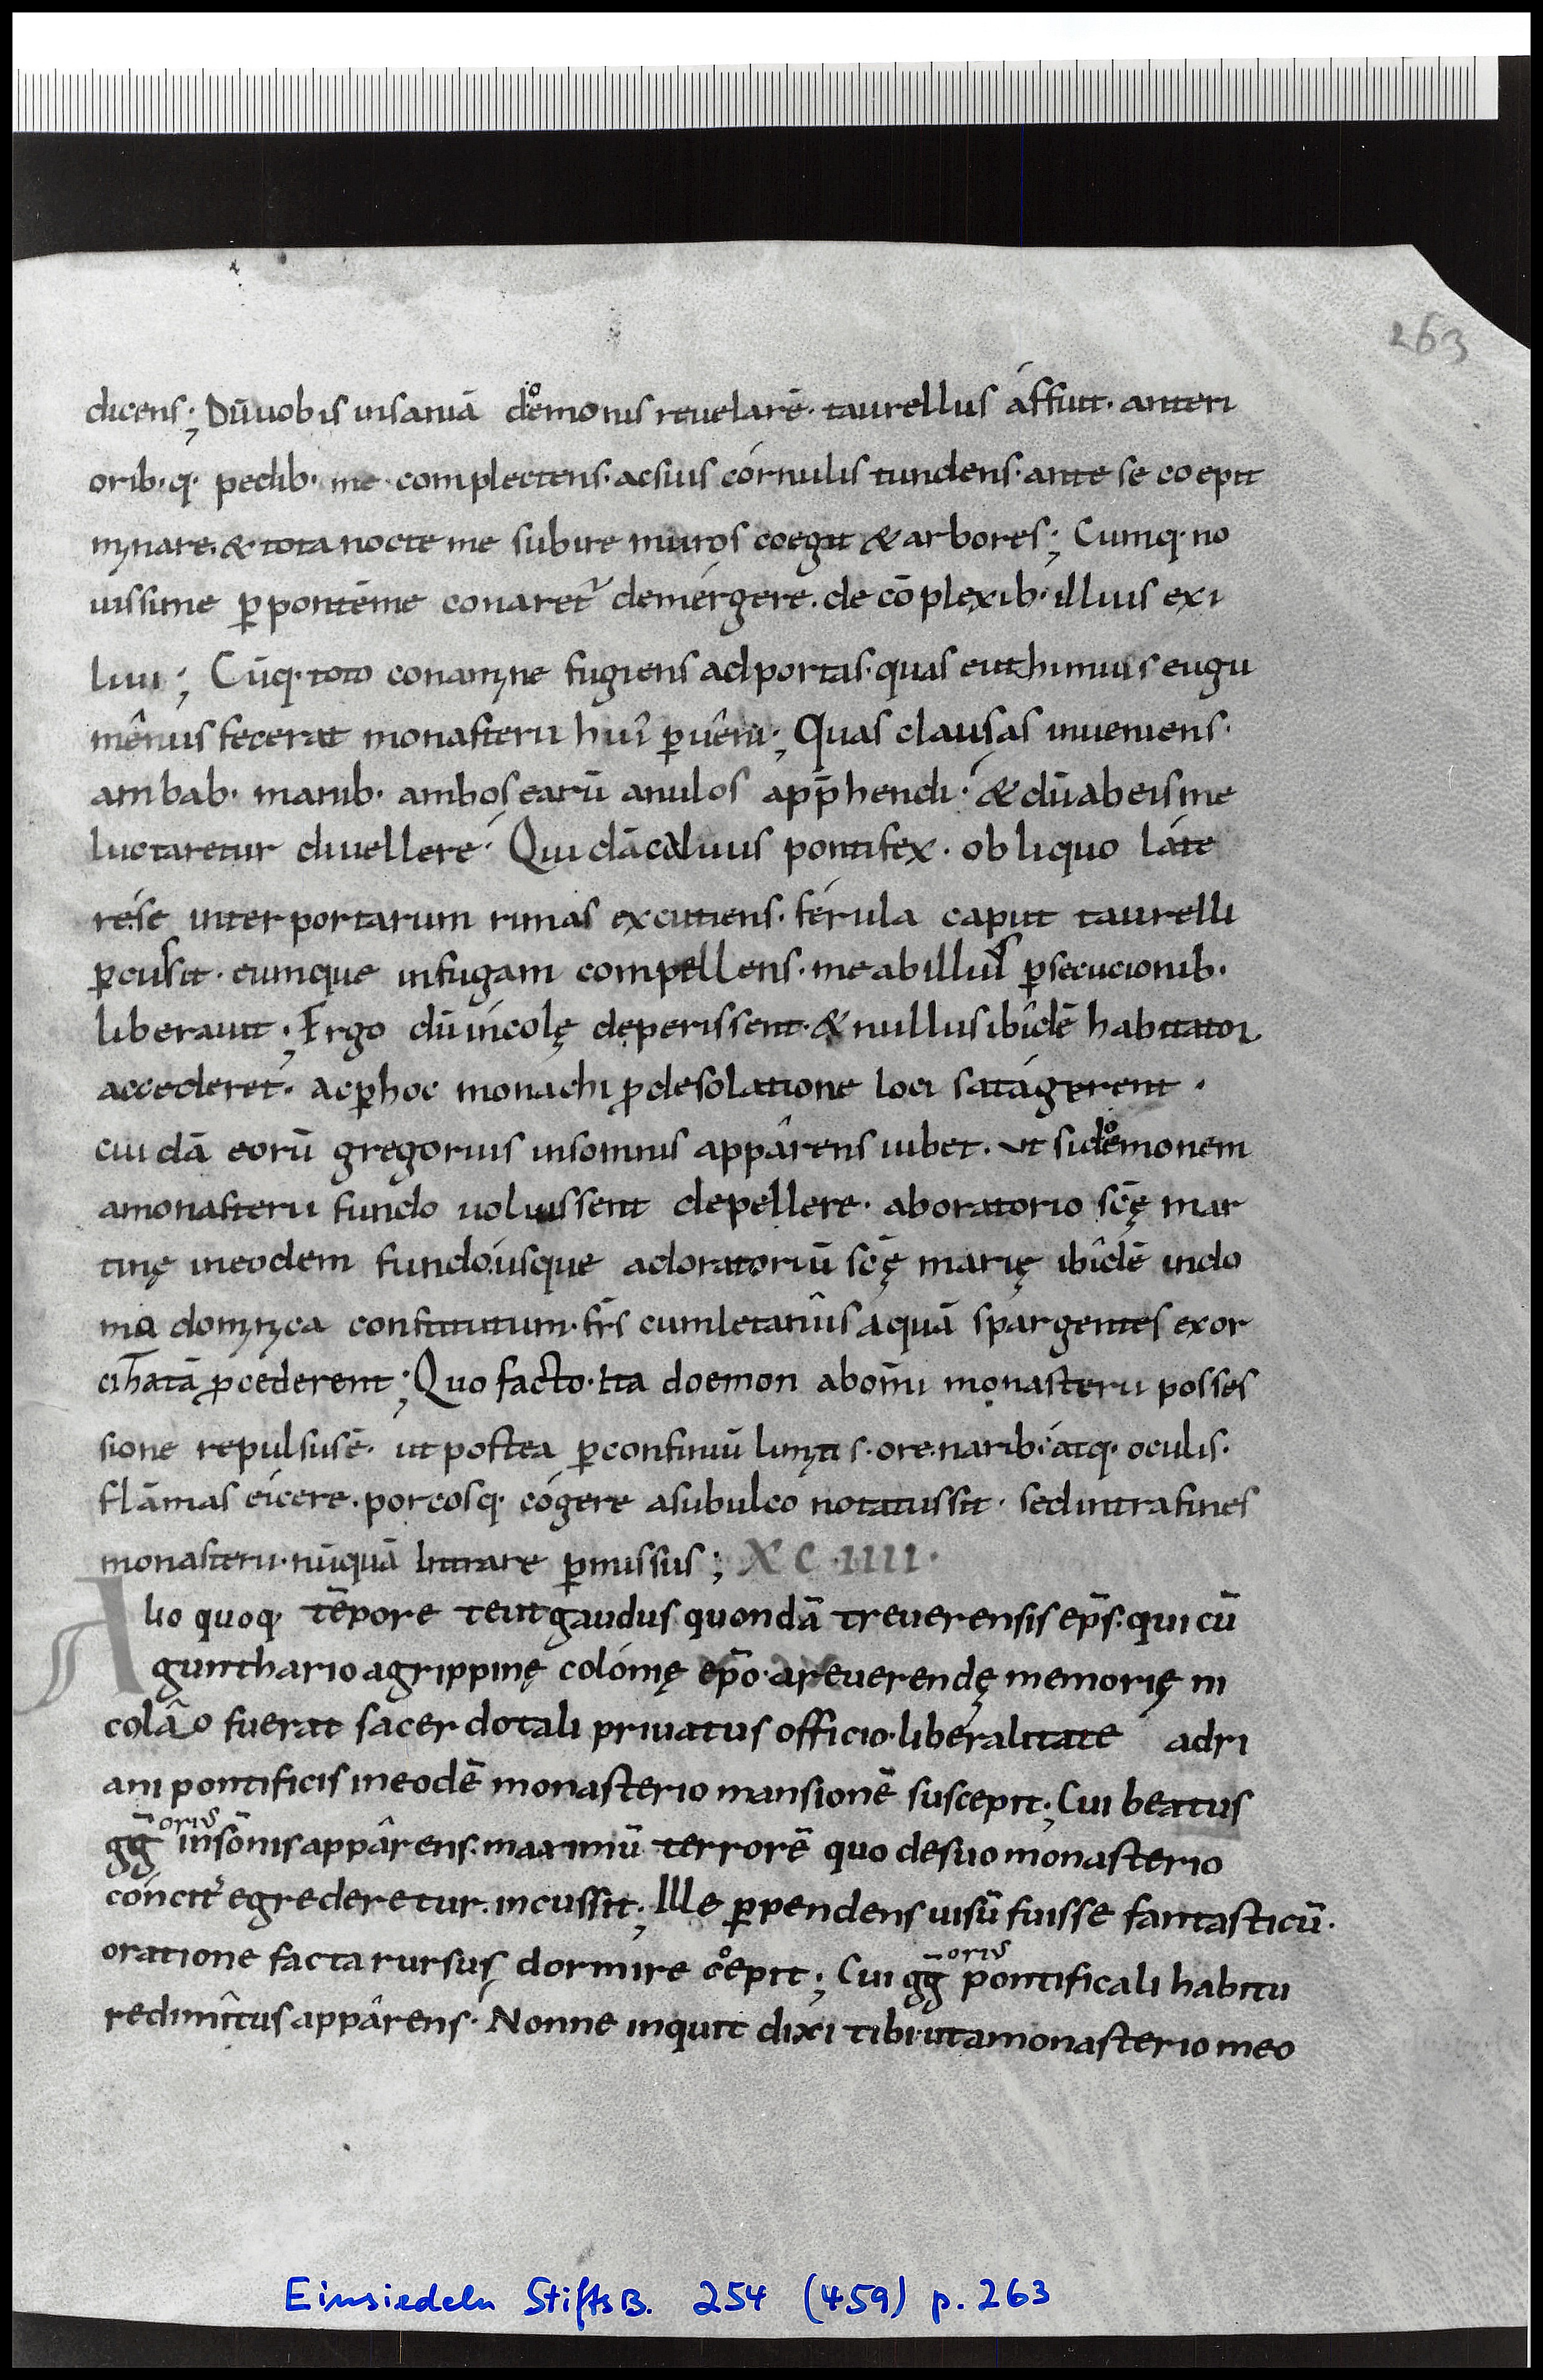 263
dicens; Dū uobis insaniā doemonis reuelarē. taurellus áffuit. anteri
orib.q. pedib. me complectens. ac suis córnulis tundens. ante se coepit
mynare. & tota nocte me subire muros coegit & arbores; Cumq. no
uissime ꝑ pontē me conaret᷑ demérgere. de cōplexib. illius exi
liui; Cūq. toto conamyne fugiens ad portas. quas euthimius eugu
mênus fecerat monasterii huî ꝑuêni; Quas clausas inueniens.
ambab. manib. ambos earū anulos app̄hendi. & dū ab eis me
luctaretur diuellere. Quidā caluus pontifex. obliquo láte
re. se inter portarum rimas excutiens. férula caput taurelli
ꝑcussit. eumque in fugam compellens. me ab illius ꝑsecucionib.
liberauit; Ergo dū incolę deperissent. & nullus ibîdē habitator
accederet. ac ꝑ hoc monachi ꝓ desolatione loci satágerent.
cuidā eorū gregorius in somnis appârens iubet. ut si doemonem
a monasterii fundo uoluissent depellere. ab oratorio scę̄ mar
tinę in eodem fundo. usque ad oratoriū scę̄ marię ibîdē in do
mo domnyca constitutum. fr̄s cum letanîis aquā spargentes exor
cizatā ꝓcederent; Quo facto. ita doemon ab om̄i monasterii posses
sione repulsus ē. ut postea ꝑ confiniū limytis. ore. naribus. atq. oculis.
flāmas eícere. porcosq. cógere a subulco notatus sit. sed intra fines
monasterii. nūquā intrare ꝑmissus; XC.IIII.
Alio quoq. tēpore teutgaudus quondā treuerensis ep̄s. qui cū
gunthario agrippinę colónię ep̄o. a reuerendę memorię ni
colâo fuerat sacerdotali priuatus officio. liberalitate adri
ani pontificis in eodē monasterio mansionē suscepit; Cui beatus
gḡorius in sōnis appârens. maximū terrorē quo de suo monasterio
cóncit᷑ egrederetur. incussit; Ille ꝑpendens uisū fuisse fantasticū.
oratione facta rursus dormire coepit; Cui gḡorius pontificali habitu
redimîtus appârens. Nonne inquit dixi tibi. ut a monasterio meo
Einsiedeln StiftsB. 254 (459) p. 263